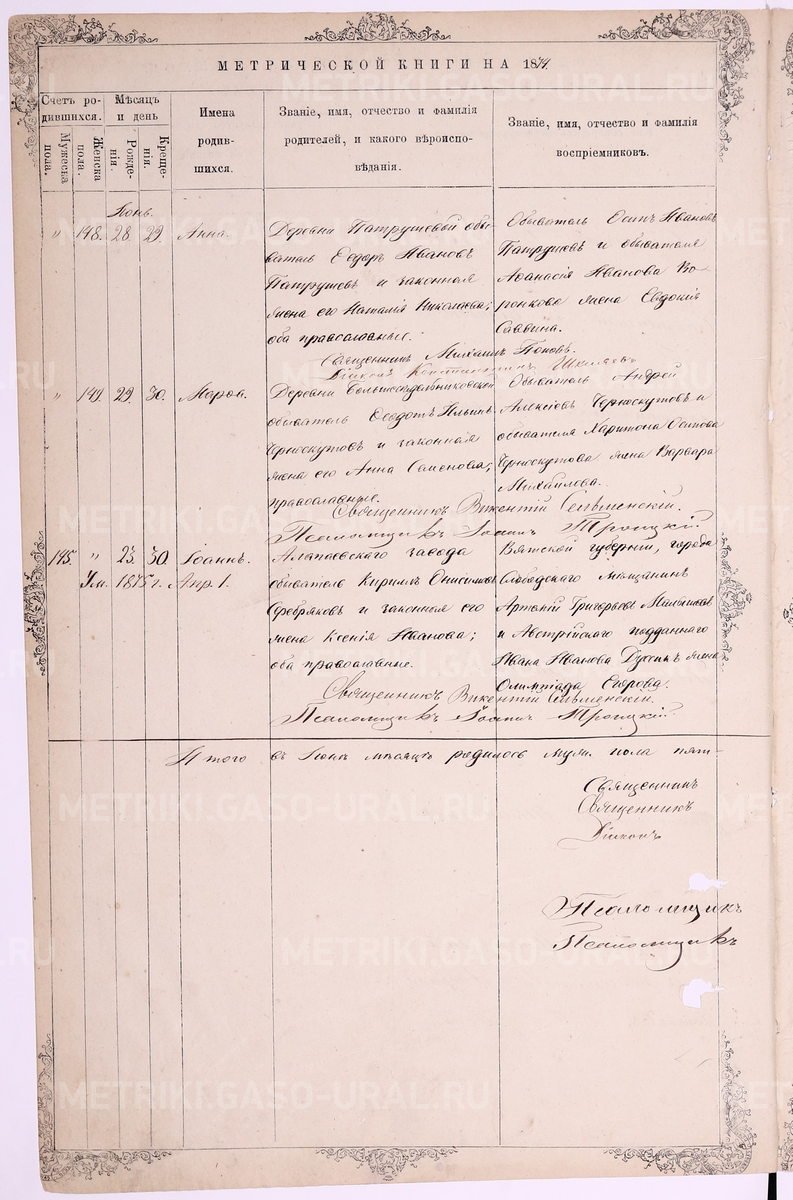 МЕТРИЧЕСКОЙ КНИГИ НА 1874.
Счетъ ро-
дившихся.
Мужеска пола.
Женска пола.
Мѣсяцъ
и день
Рожде-
нія.
Креще-
нія.
Имена
родив-
шихся.
Званіе, имя, отчество и фамилія
родителей, и какого вѣроиспо-
вѣданія.
Званіе, имя, отчество и фамилія
воспріемниковъ.
Іюнь.
" 148. 28. 29. Анна.
Деревни Патрушевой обы-
ватель Ѳедоръ Ивановъ
Патрушевъ и законная
жена его Наталія Николаева;
оба православные.
Обыватель Осипъ Ивановъ
Патрушевъ и обывателя
Аѳанасія Иванова Во-
ронкова жена Евдокія
Саввина.
Священникъ Михаилъ Поповъ.
Діаконъ Константинъ
" 149. 29. 30. Марѳа.
Деревни
обыватель Ѳеодотъ Ильинъ
Черноскутовъ и законная
жена его Анна Семенова;
православные.
Обыватель Андрей
Алексѣевъ Черноскутовъ и
обывателя Харитона Осипова
Черноскутова жена Варвара
Михайлова.
Священникъ Викентій Сельменскій.
Псаломщикъ Іоаннъ Троицкій.
145. " 23. 30. Іоаннъ.
Ум. 1875 г. Апр. 1.
Алапаевского завода
обыватель Кириллъ Онисимовъ
Серебряковъ и законная его
жена Ксенія Иванова;
оба православные.
Вятской губерніи, города
Слободскаго мѣщанинъ
Артемій Григорьевъ
и Австрійскаго подданнаго
Ивана Иванова жена
Олимпіада Егорова.
Священникъ Викентій Сельменскій.
Псаломщикъ Іоаннъ Троицкій.
Итого въ Іюнѣ мѣсяцѣ родилось муж. пола пят-
Священникъ
Священникъ
Діаконъ
Псаломщикъ
Псаломщикъ
METRIKI.GASO-URAL.RU